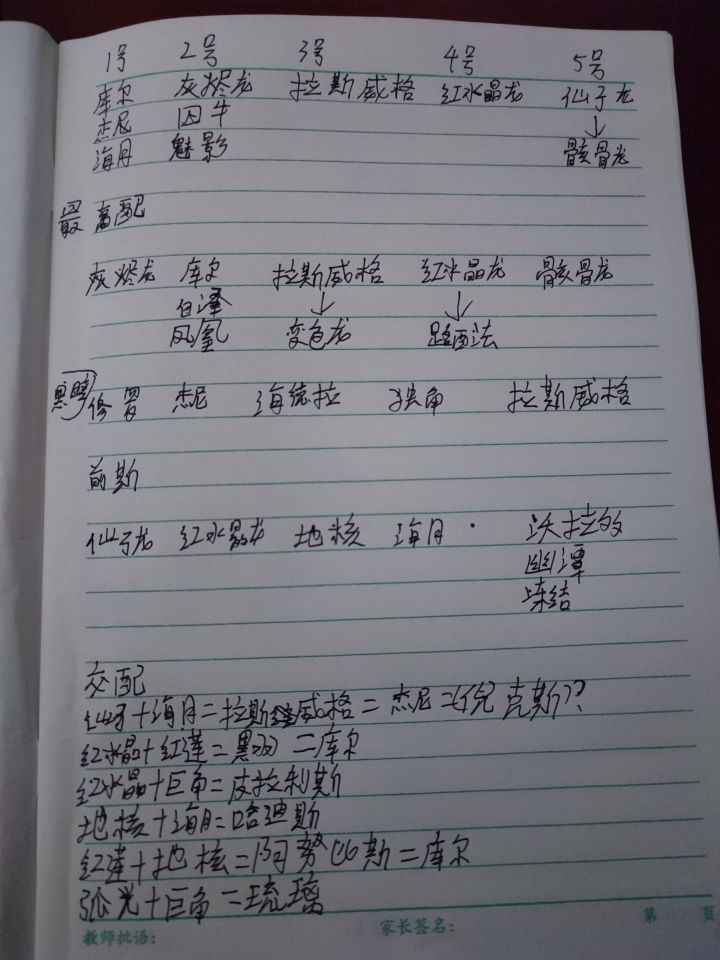 1号 2号 3号 4号 5号
库尔 灰烬龙 拉斯威格 红水晶龙 仙子龙
杰尼 囚牛 ↓
海月 魅影 骸骨龙
最高配
灰烬龙 库尔 拉斯威格 红水晶龙 骸骨龙
白泽 ↓ ↓
凤凰 变色龙 路西法
黑臂
修罗 杰尼 海德拉 独角 拉斯威格
前斯
仙子龙 红水晶龙 地核 海月 · 沃拉的
幽潭
冻结
交配
仙子+海月=拉斯威格=杰尼=倪克斯??
红水晶+红莲=黑羽=库尔
红水晶+巨角=皮拉利斯
地核+海月=哈迪斯
红莲+地核=阿努比斯=库尔
弧光+巨角=琉璃
教师批语: 家长签名: 第 页